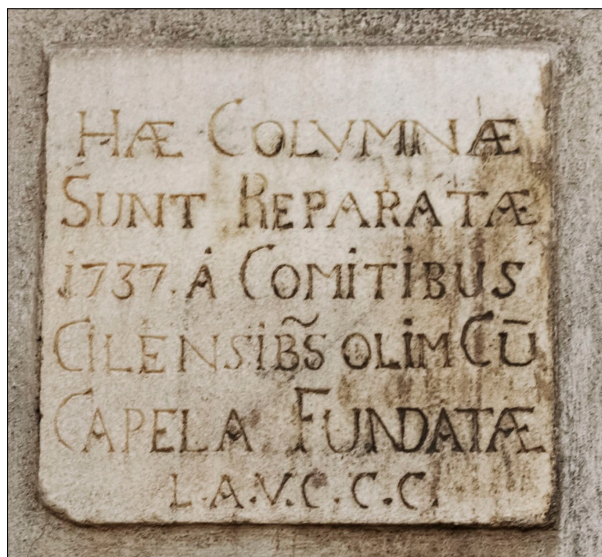 HÆ COLVMNÆ
SUNT REPARATÆ
1737. A COMITIBUS
CILENSIBS̃ OLIM CŪ
CAPELA FUNDATÆ
L.A.V.C.C.C.